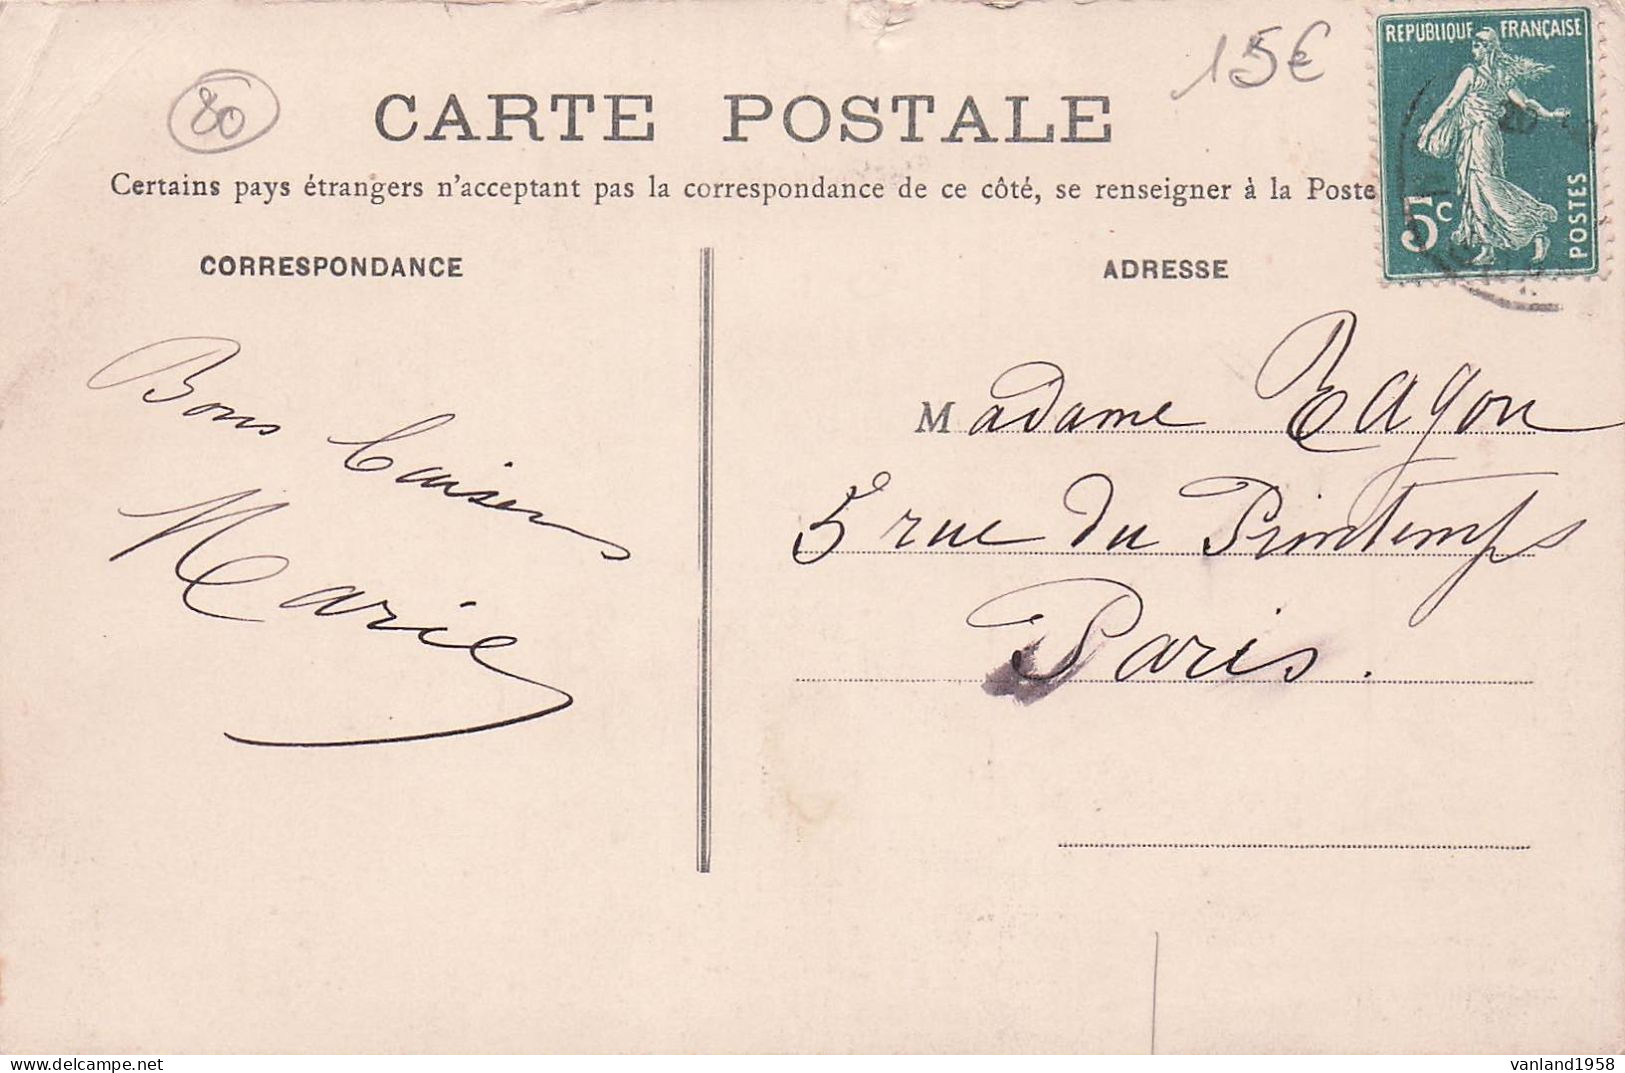 80
15€
REPUBLIQUE FRANÇAISE
5c
POSTES
CARTE POSTALE
Certains pays étrangers n'acceptant pas la correspondance de ce côté, se renseigner à la Poste
CORRESPONDANCE
ADRESSE
Bons baisers
Marie
Madame Ragon
5 rue du Printemps
Paris.
vanland1958